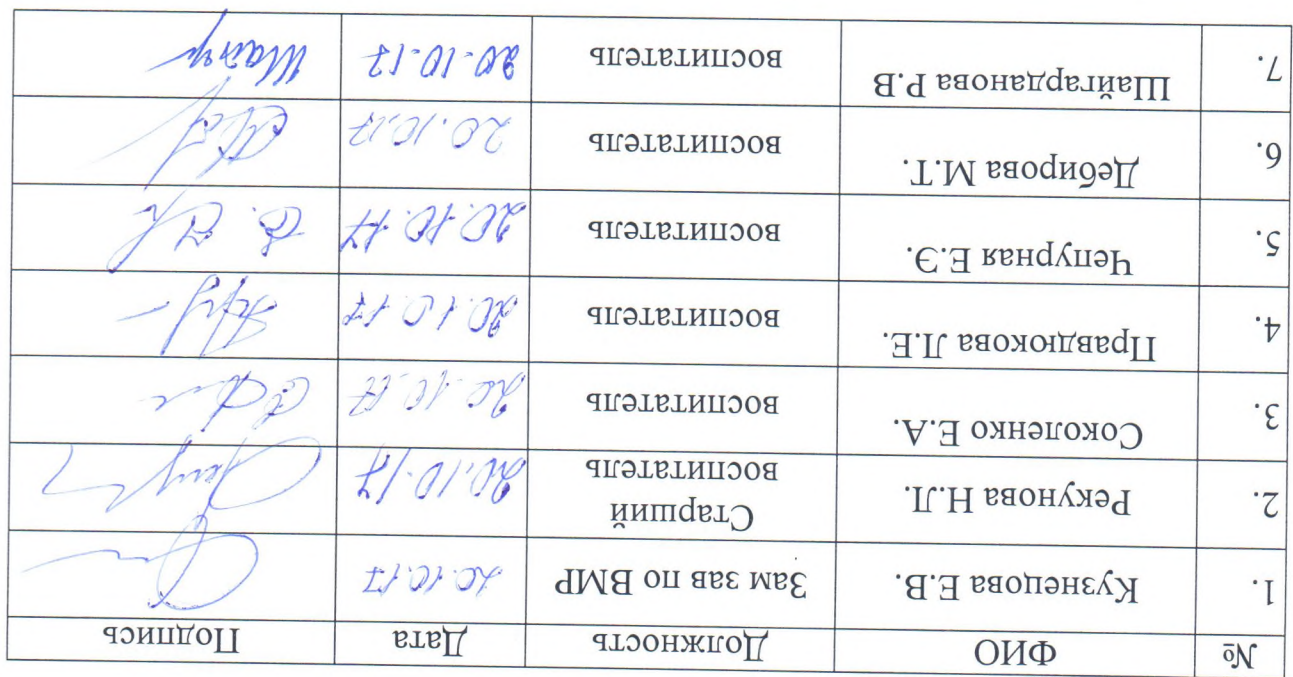 № ФИО Должность Дата Подпись
1. Кузнецова Е.В. Зам зав по ВМР 20.10.17
2. Рекунова Н.Л. Старший воспитатель 20.10.17
3. Соколенко Е.А. воспитатель 20.10.17
4. Правдюкова Л.Е. воспитатель 20.10.17
5. Чепурная Е.Э. воспитатель 20.10.17
6. Дебирова М.Т. воспитатель 20.10.17
7. Шайгарданова Р.В воспитатель 20.10.17